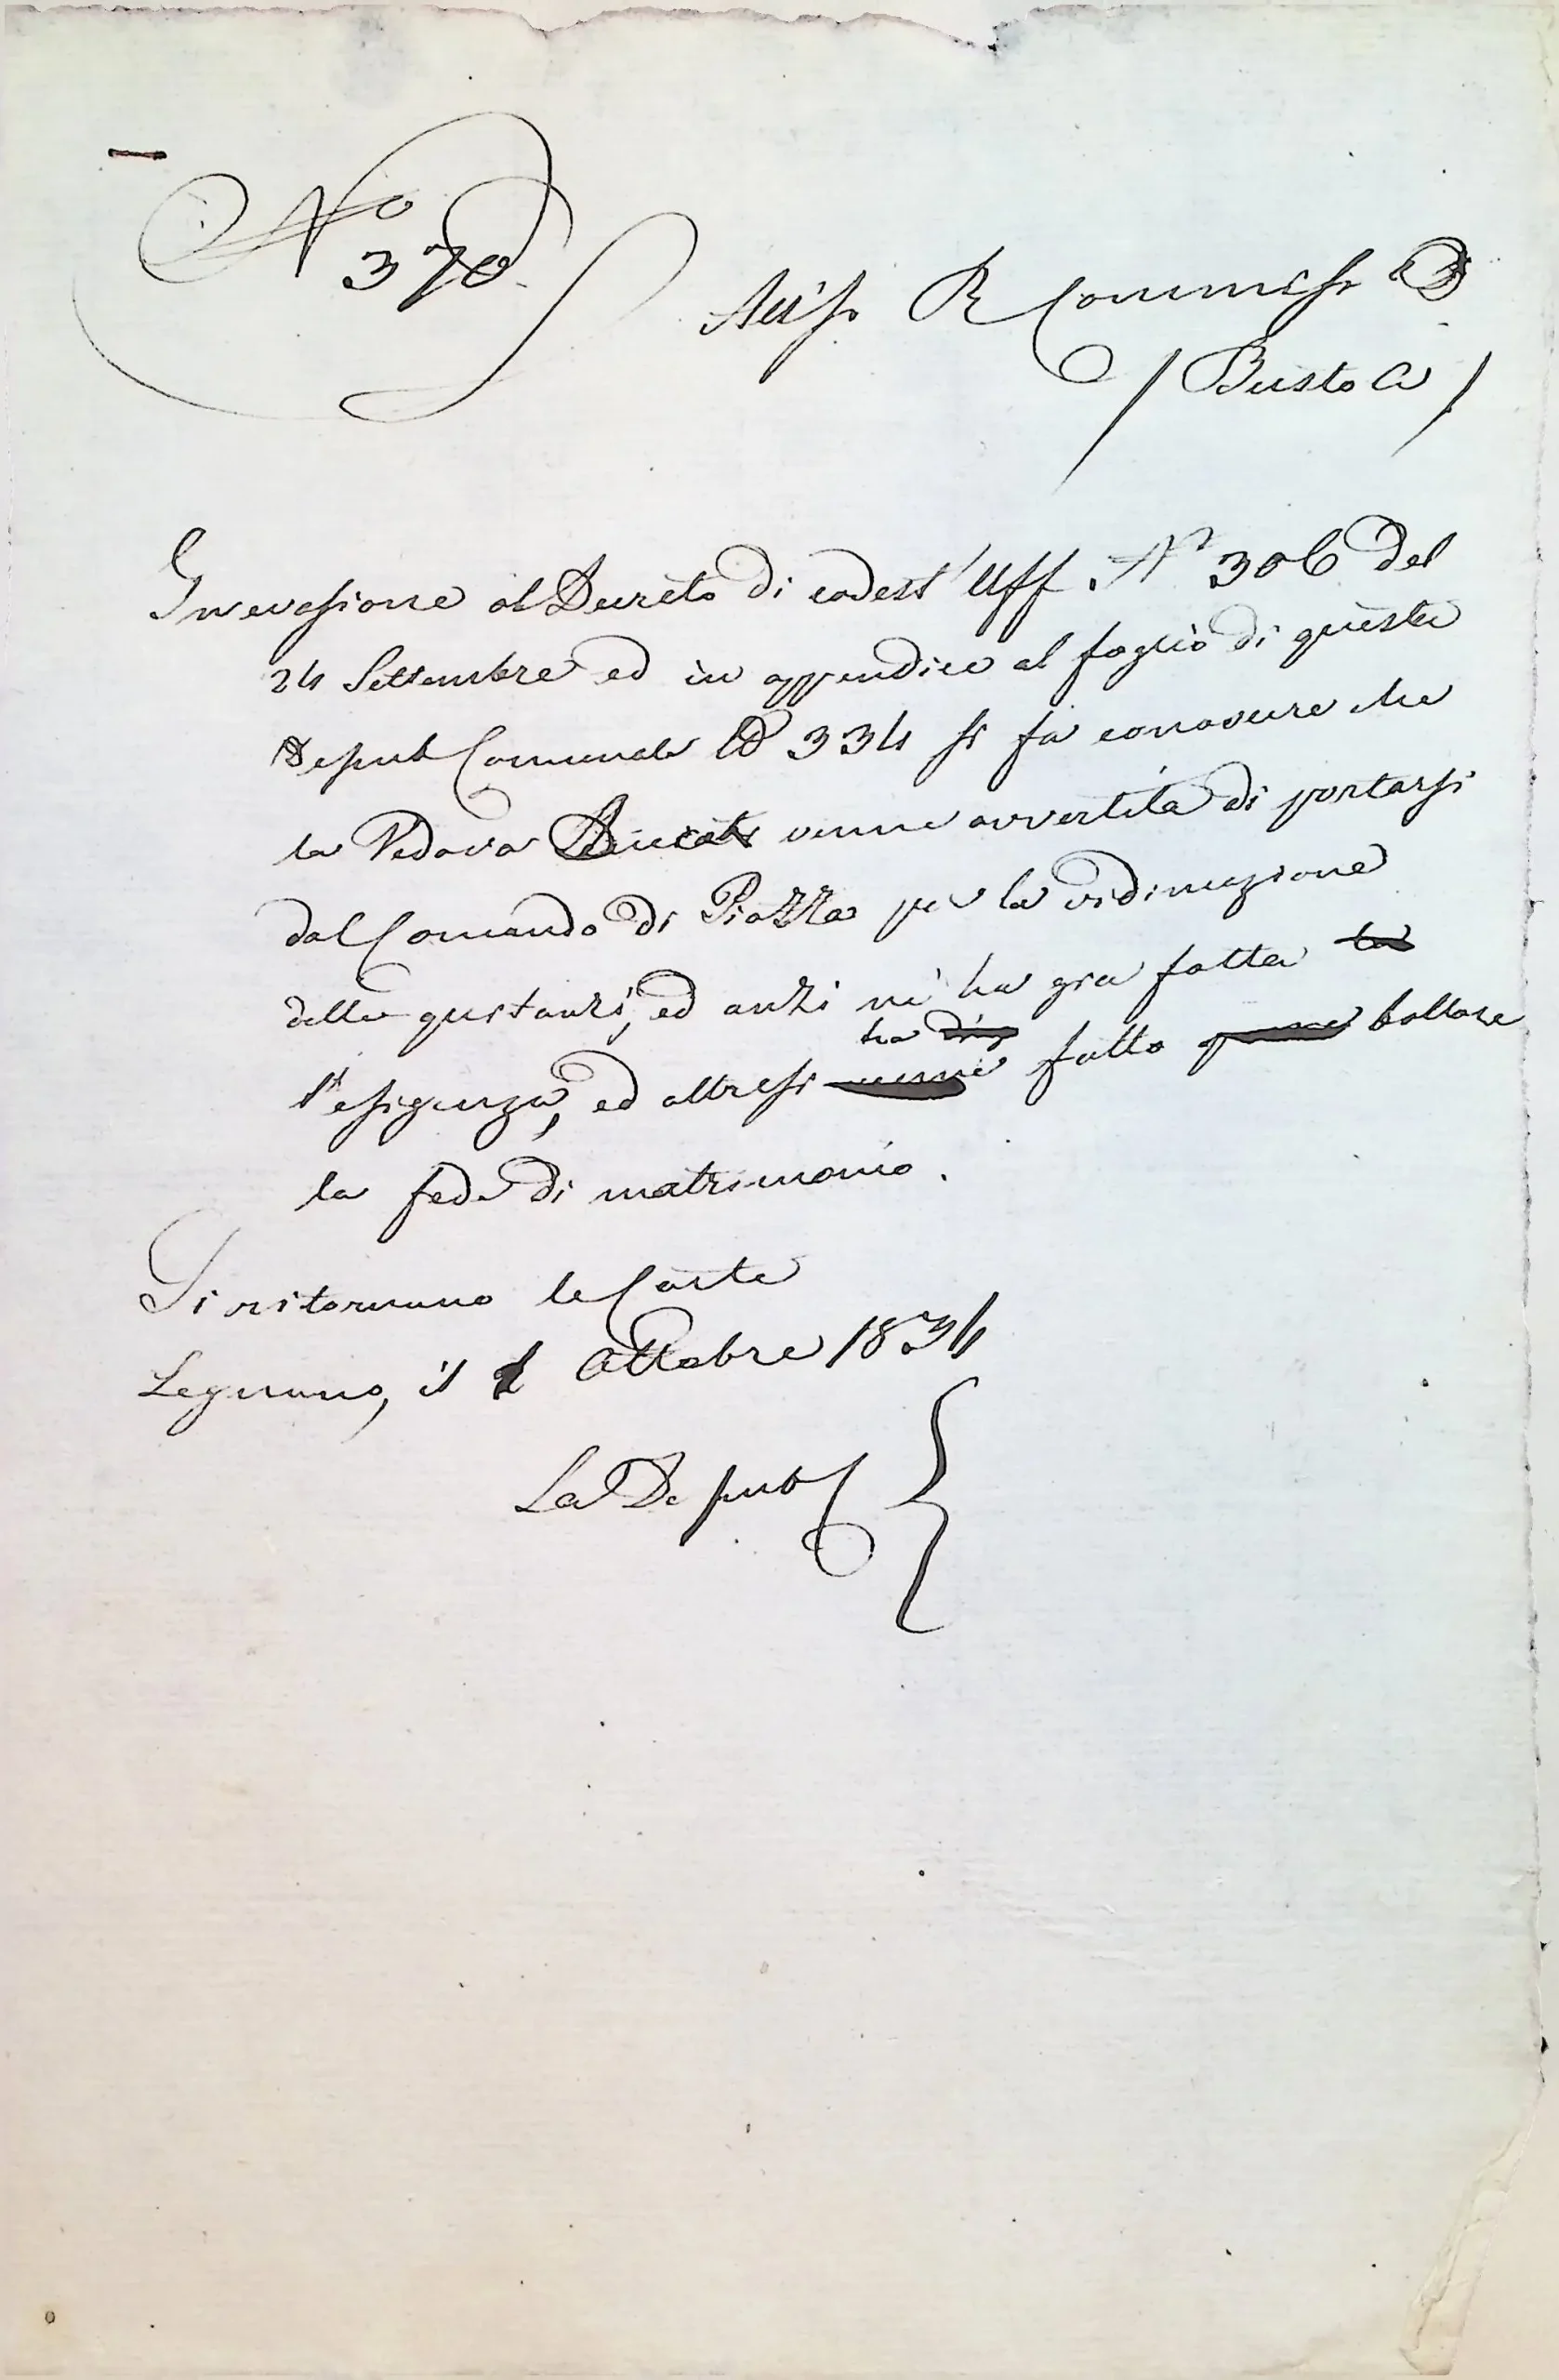 N.o
370
All' R Commiss
/ Busto A /
In evasione al Decreto di codest' Uff. N° 306 del
24 Settembre ed in appendice al foglio di questa
Deput Comunale 334 si fa conoscere che
la Vedova venne avvertita di portarsi
dal Comando di Piazza per la vidimazione
delle quitanzi, ed anzi ne ha gia fatta la
ha
l'esigenza, ed altresi fatto bollare
la fede di matrimonio.
Si ritornano le Carte
Legnano, il 1 Ottobre 1834
La Deput